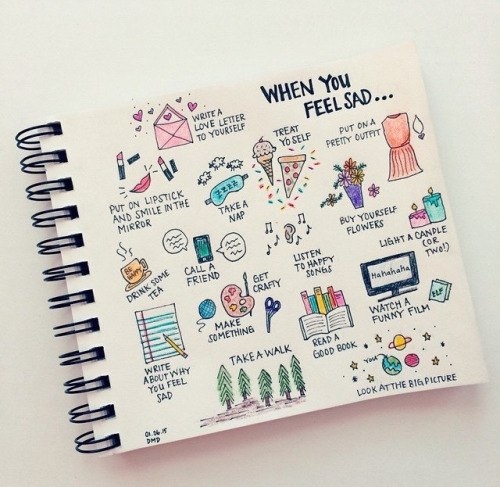 WHEN YOU
FEEL SAD...
WRITE A
LOVE LETTER
TO YOURSELF
TREAT
YO SELF
PUT ON A
PRETTY OUTFIT
PUT ON LIPSTICK
AND SMILE IN THE
MIRROR
ZZZZ
TAKE A
NAP
BUY YOURSELF
FLOWERS
LIGHT A CANDLE
(OR
TWO!)
BE
HAPPY
DRINK SOME
TEA
CALL A
FRIEND
LISTEN
TO HAPPY
SONGS
Hahahaha
WATCH A
FUNNY FILM
GET
CRAFTY
MAKE
SOMETHING
READ A
GOOD BOOK
WRITE
ABOUT WHY
YOU FEEL
SAD
TAKE A WALK
YOU
LOOK AT THE BIG PICTURE
01.06.15
DMD